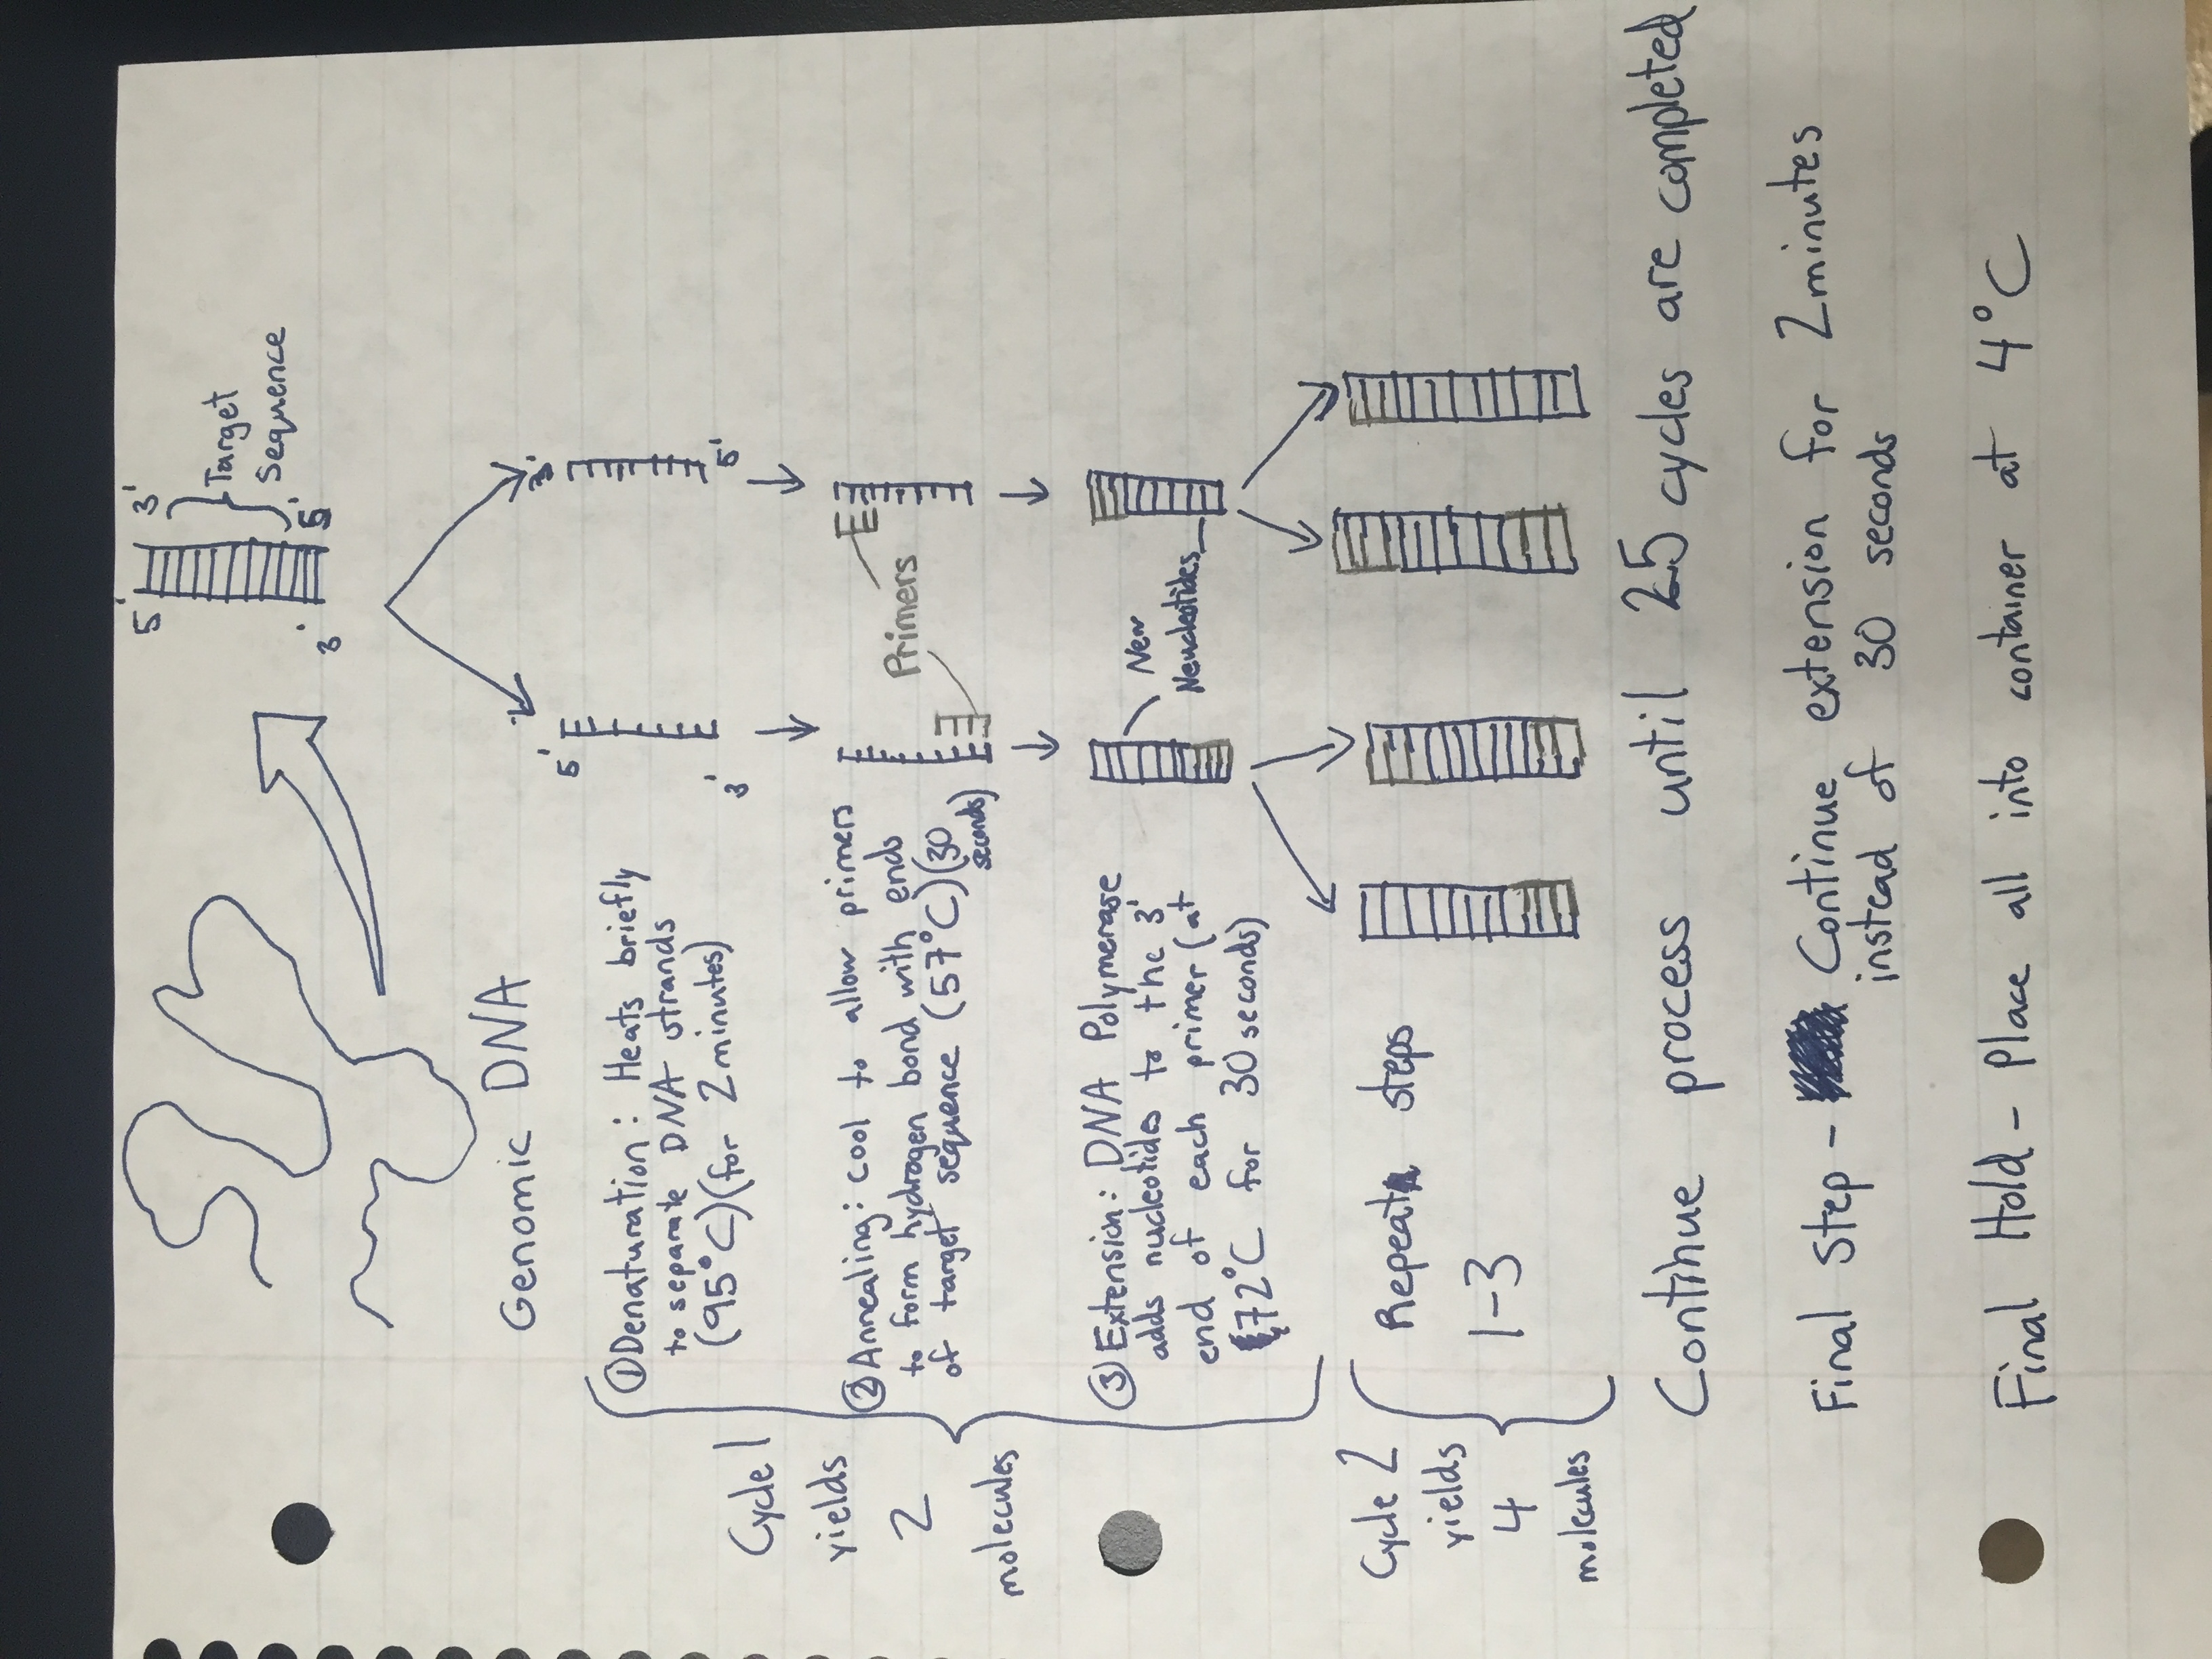 5' 3'
Target
Sequence
3' 5'
Genomic DNA
Cycle 1
yields
2
molecules
① Denaturation: Heats briefly
to separate DNA strands
(95°C)(for 2 minutes)
5' 3'
3' 5'
② Annealing: cool to allow primers
to form hydrogen bond with ends
of target sequence (57°C)(30
seconds)
Primers
③ Extension: DNA Polymerase
adds nucleotides to the 3'
end of each primer (at
72°C for 30 seconds)
New
Neucleotides
Cycle 2
yields
4
molecules
Repeat steps
1-3
Continue process until 25 cycles are completed
Final Step - Continue extension for 2 minutes
instead of 30 seconds
Final Hold - Place all into container at 4°C